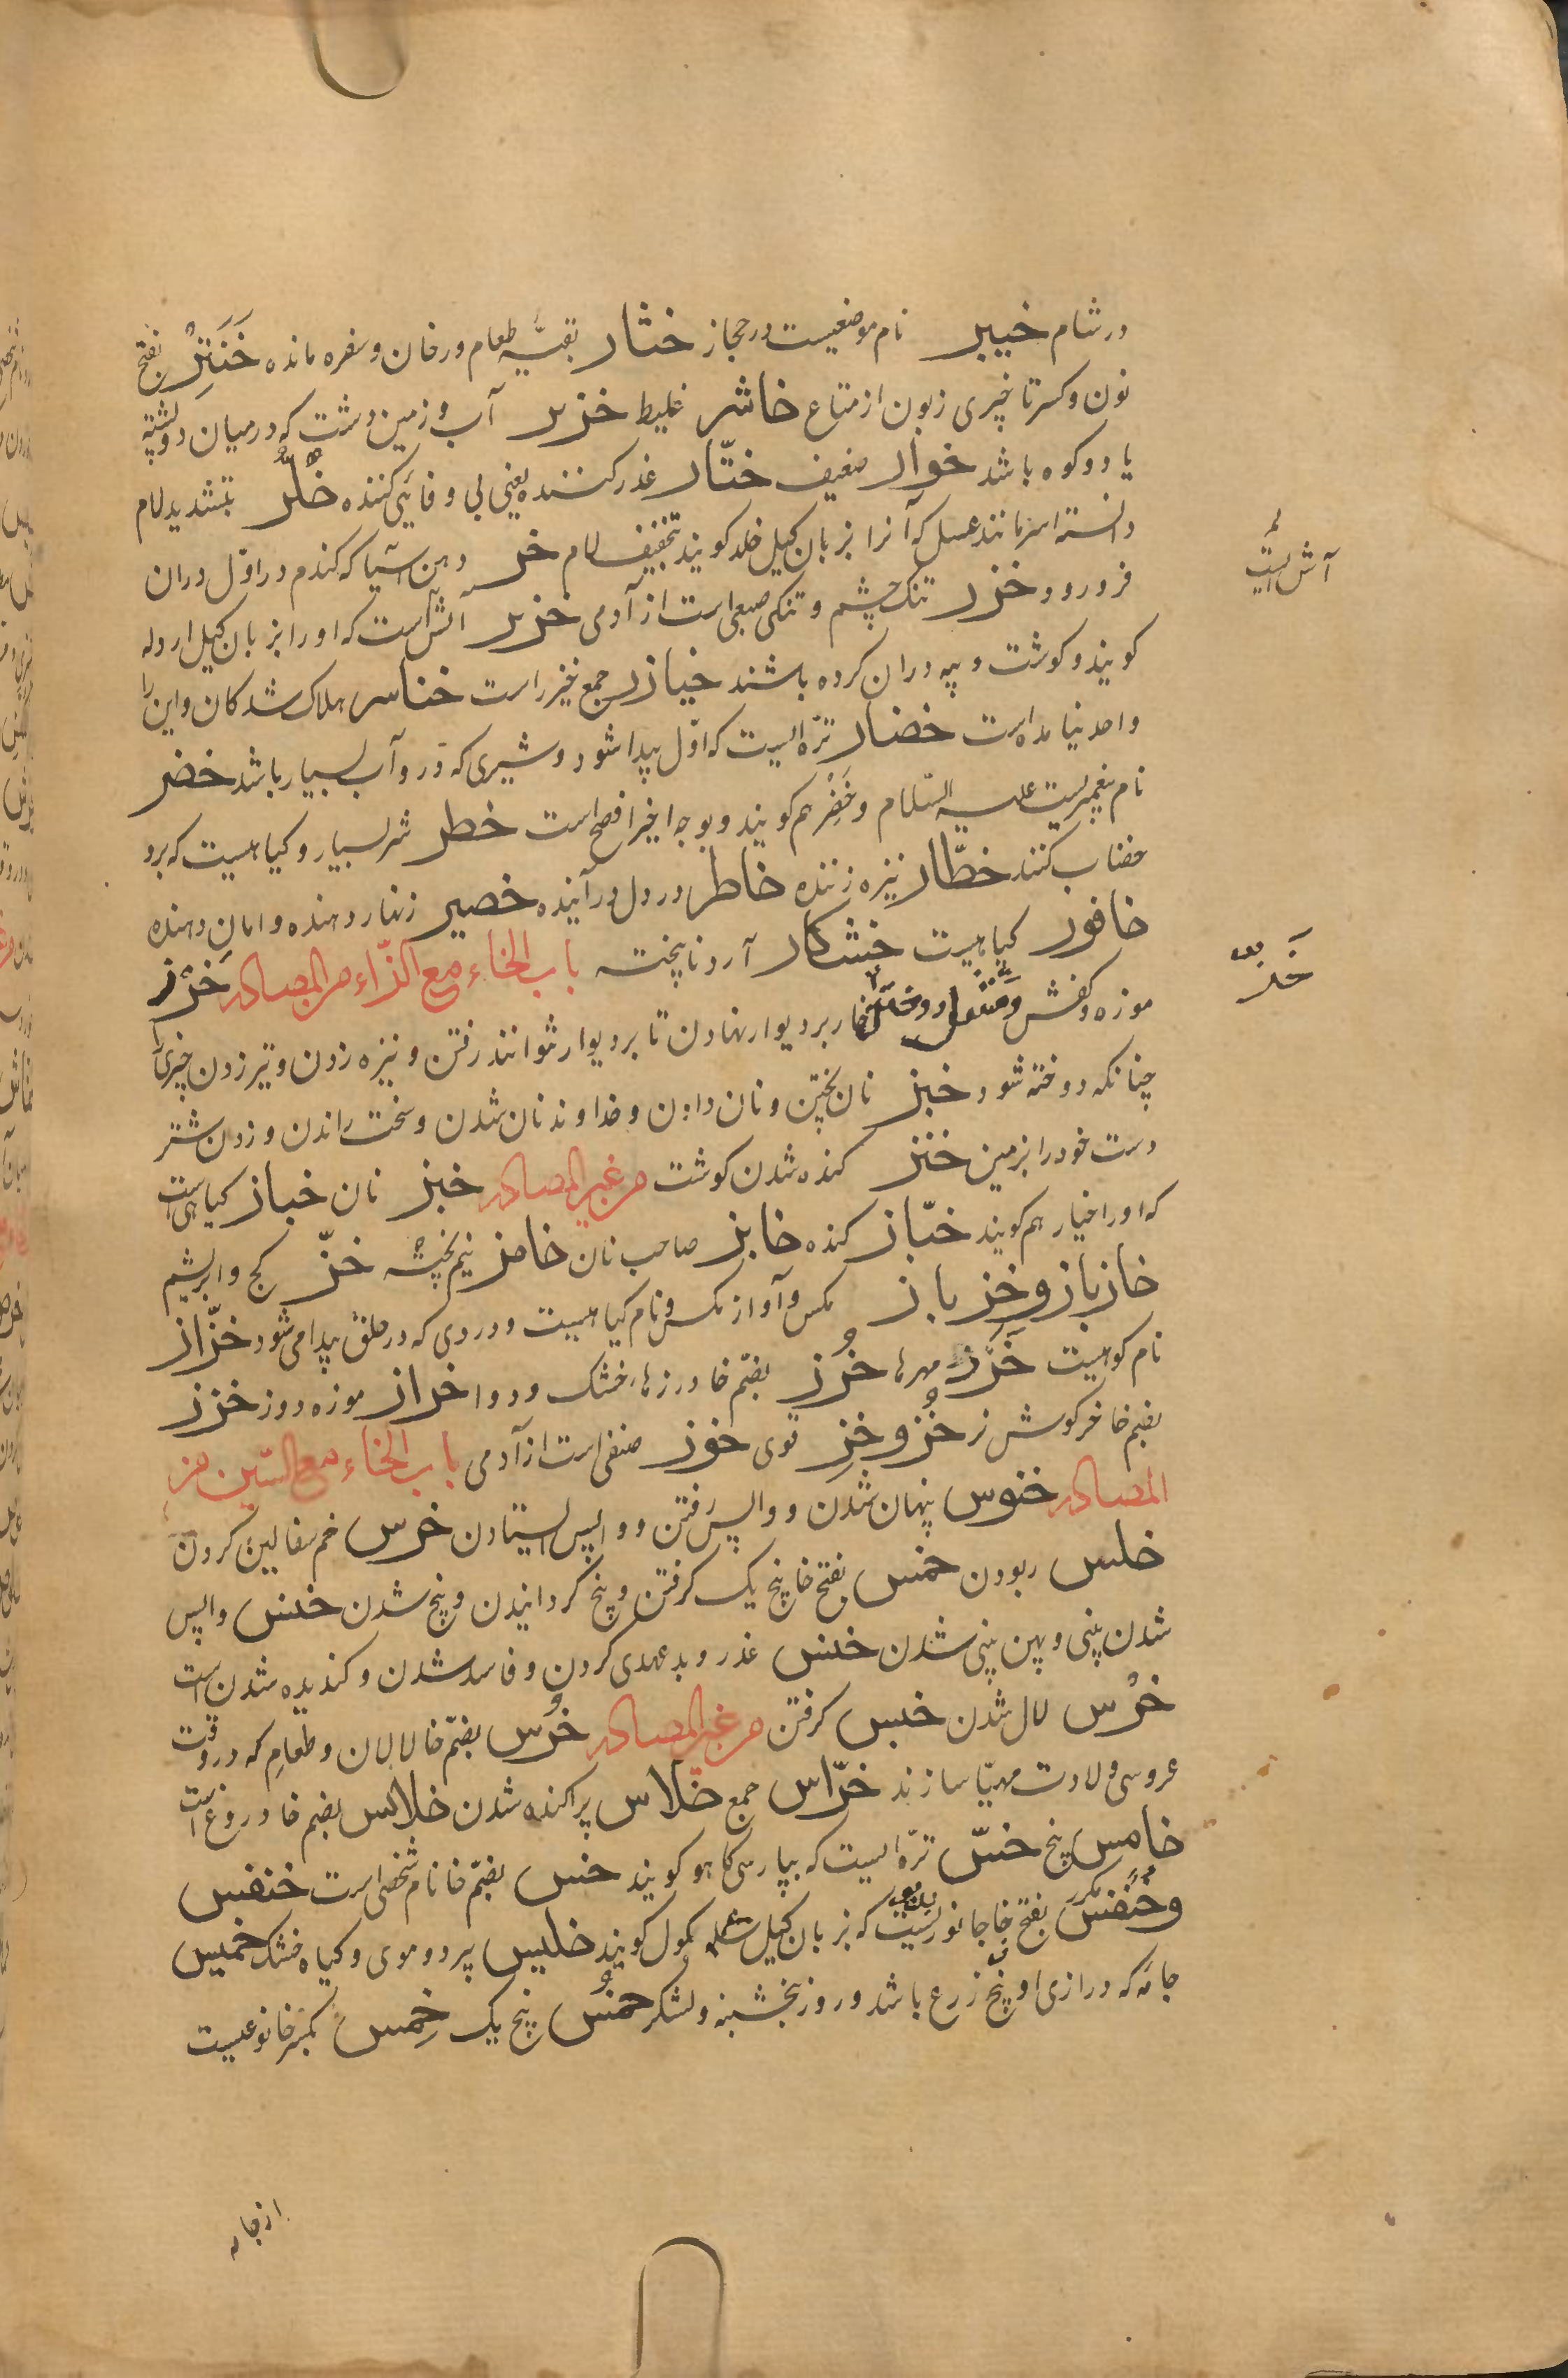 در شام خیبر نام موضعیست در حجاز خثار بقیّه طعام در خان و سفره مانده خَنَثِرْ بفتح
نون و کسر تا چیزی زبون از متاع خاشر غلیط خزیر آب و زمین دشت که در میان دو پشته
یا دو کوه باشد خوار ضعیف ختّار غدر کننده یعنی بی وفائی کننده خُلَّر بتشدید لام
دانسته است مانند عسل که آنرا بزبان کیل خلد کویند تخفیف لام خر دهن آسیا که کندم در اوّل دران
فرو رود خزر تنک چشم و تنکی صبعی است از آدمی خزیر آتش است که او را بزبان کیل اردوله
کویند و کوشت و پیه دران کرده باشند خیازر جمع خیزر است خناسر هلاک شدکان و این را
واحد نیامده است خضار ترّه ایست که اوّل پیدا شود و شیری که در و آب بسیار باشد خضر
نام پیغمبریست علیه السّلام و خَضِرْ هم کویند و بوجه اخیر افصح است خطر شتر بسیار و کیاهیست که برو
خضاب کنند خطّار نیزه زننده خاطر در دل در آینده خصیر زنهار دهنده و امان دهنده
خافور کیاهیست خشکار آرد ناپخته باب الخاء مع الزّاء من المصادر خَرْز
موزه و کفش و مَشک دوختن خار بر دیوار نهادن تا بر دیوار نتوانند رفتن و نیزه زدن و تیر زدن چیزی را
چنانکه دوخته شود خبز نان پختن و نان دادن و خداوند نان شدن و سخت راندن و زدن شتر
دست خود را بزمین خنز کنده شدن کوشت من غیر المصادر خبز نان خباز کیاهی است
که او را خیار هم کویند خبّاز کنده خابز صاحب نان خامز نیم پخته خزّ کج و ابریشم
خازباز و خزباز مکس و آواز مکس و نام کیاهیست و دردی که در حلق پیدا می شود خزّاز
نام کوهیست خَرَز مهرها خُرَز بضمّ خا درزها، خشک و دوا خراز موزه دوز خزز
بضم خا خرکوش نر خُز و خِز قوی خوز صنفی است از آدمی باب الخاء مع السّین من
المصادر خنوس پنهان شدن و واپس رفتن و واپس ایستادن خرس خم سفالین کردن
خلس ربودن خمس بفتح خا پنج یک کرفتن و پنج کردانیدن و پنج شدن خنس واپس
شدن بینی و پهن بینی شدن خیس غدر و بد عهدی کردن و فاسد شدن و کندیده شدن است
خرْس لال شدن خبس کرفتن من غیر المصادر خُرس بضمّ خا لالان و طعامی که در وقت
عروسی و ولادت مهیّا سازند خرّاس جمع خلاس پراکنده شدن خلابس بضم خا دروغ است
خامس پنج خسّ ترّه ایست که بپارسی کاهو کویند خنس بضمّ خا نام شخصی است خنفس
و خُنفُس بفتح خا جانوریست که بزبان کیل کمول کویند خلیس پیر دو موی و کیاه خشک خمیس
جامه که درازی او پنج زرع باشد و روز پنجشنبه و لشکر خمُس پنج یک خِمس بکسر خا نوعیست
آش است
خَلر
از جامه